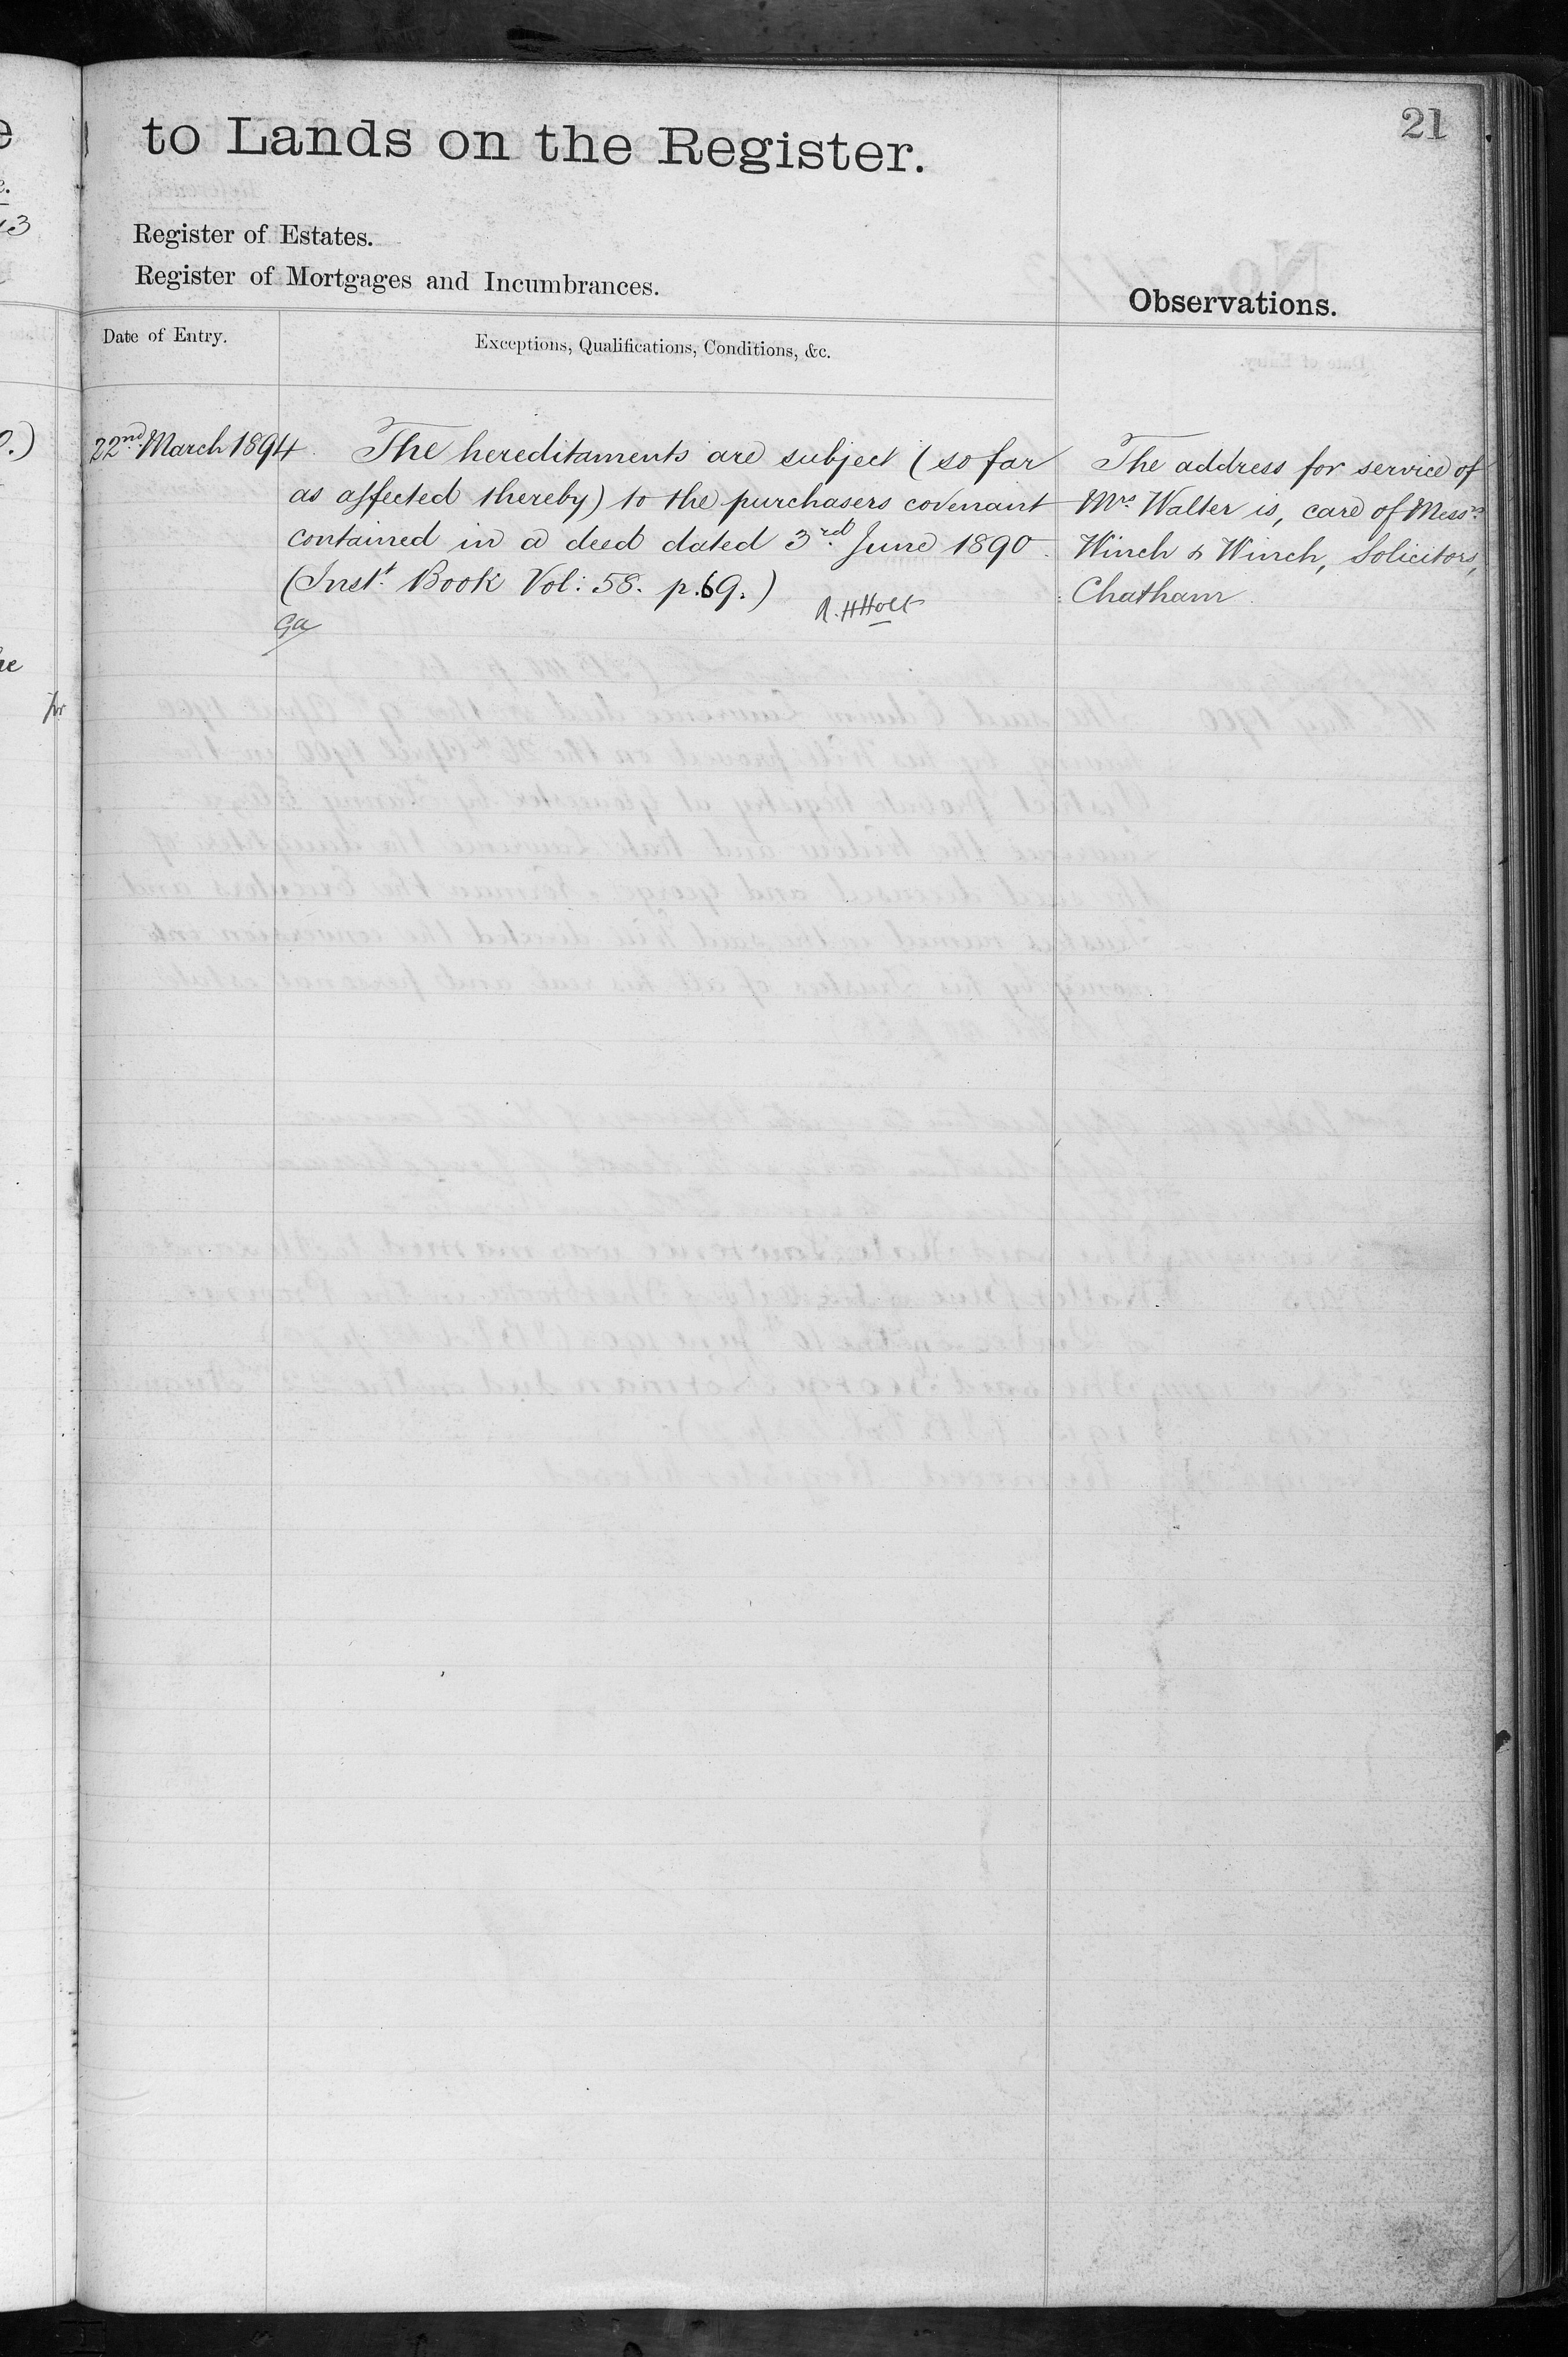 21
to Lands on the Register.
Register of Estates.
Register of Mortgages and Incumbrances.
Observations.
Date of Entry.
Exceptions, Qualifications, Conditions, &c.
22nd March 1894
The hereditaments are subject (so far
as affected thereby) to the purchasers covenant
contained in a deed dated 3rd June 1890.
(Inst. Book Vol: 58. p.69.)
R.H Holt
Ga
The address for service of
Mrs. Walter is, care of Messrs.
Winch & Winch, Solicitors,
Chatham